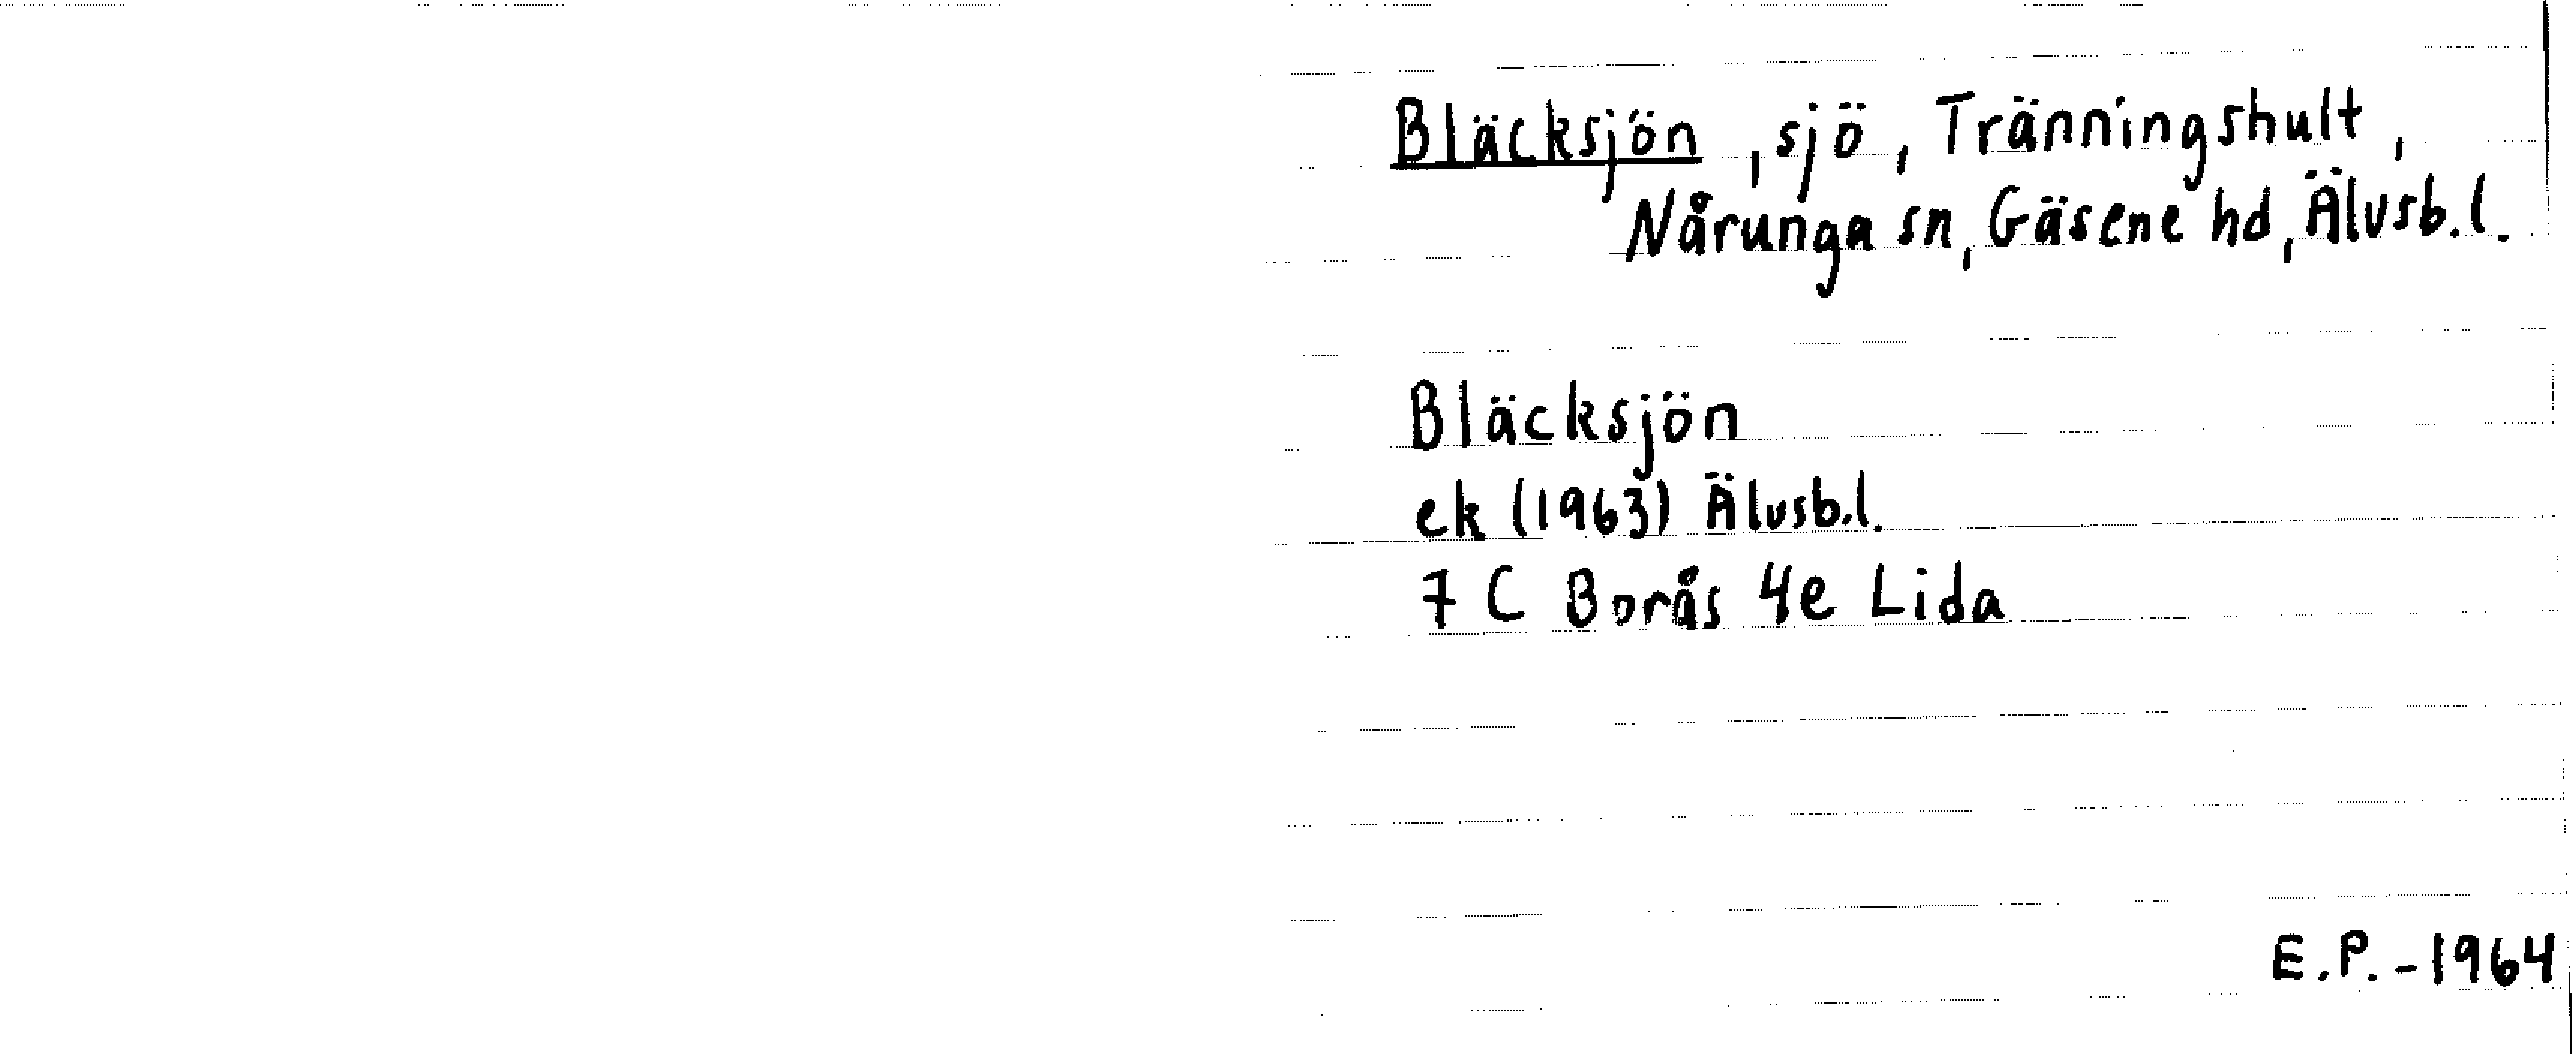 Bläcksjön, sjö, Tränningshult,
Nårunga sn, Gäsene hd, Älvsb.l.
Bläcksjön
ek (1963) Älvsb.l.
7 C Borås 4e Lida
E.P.-1964